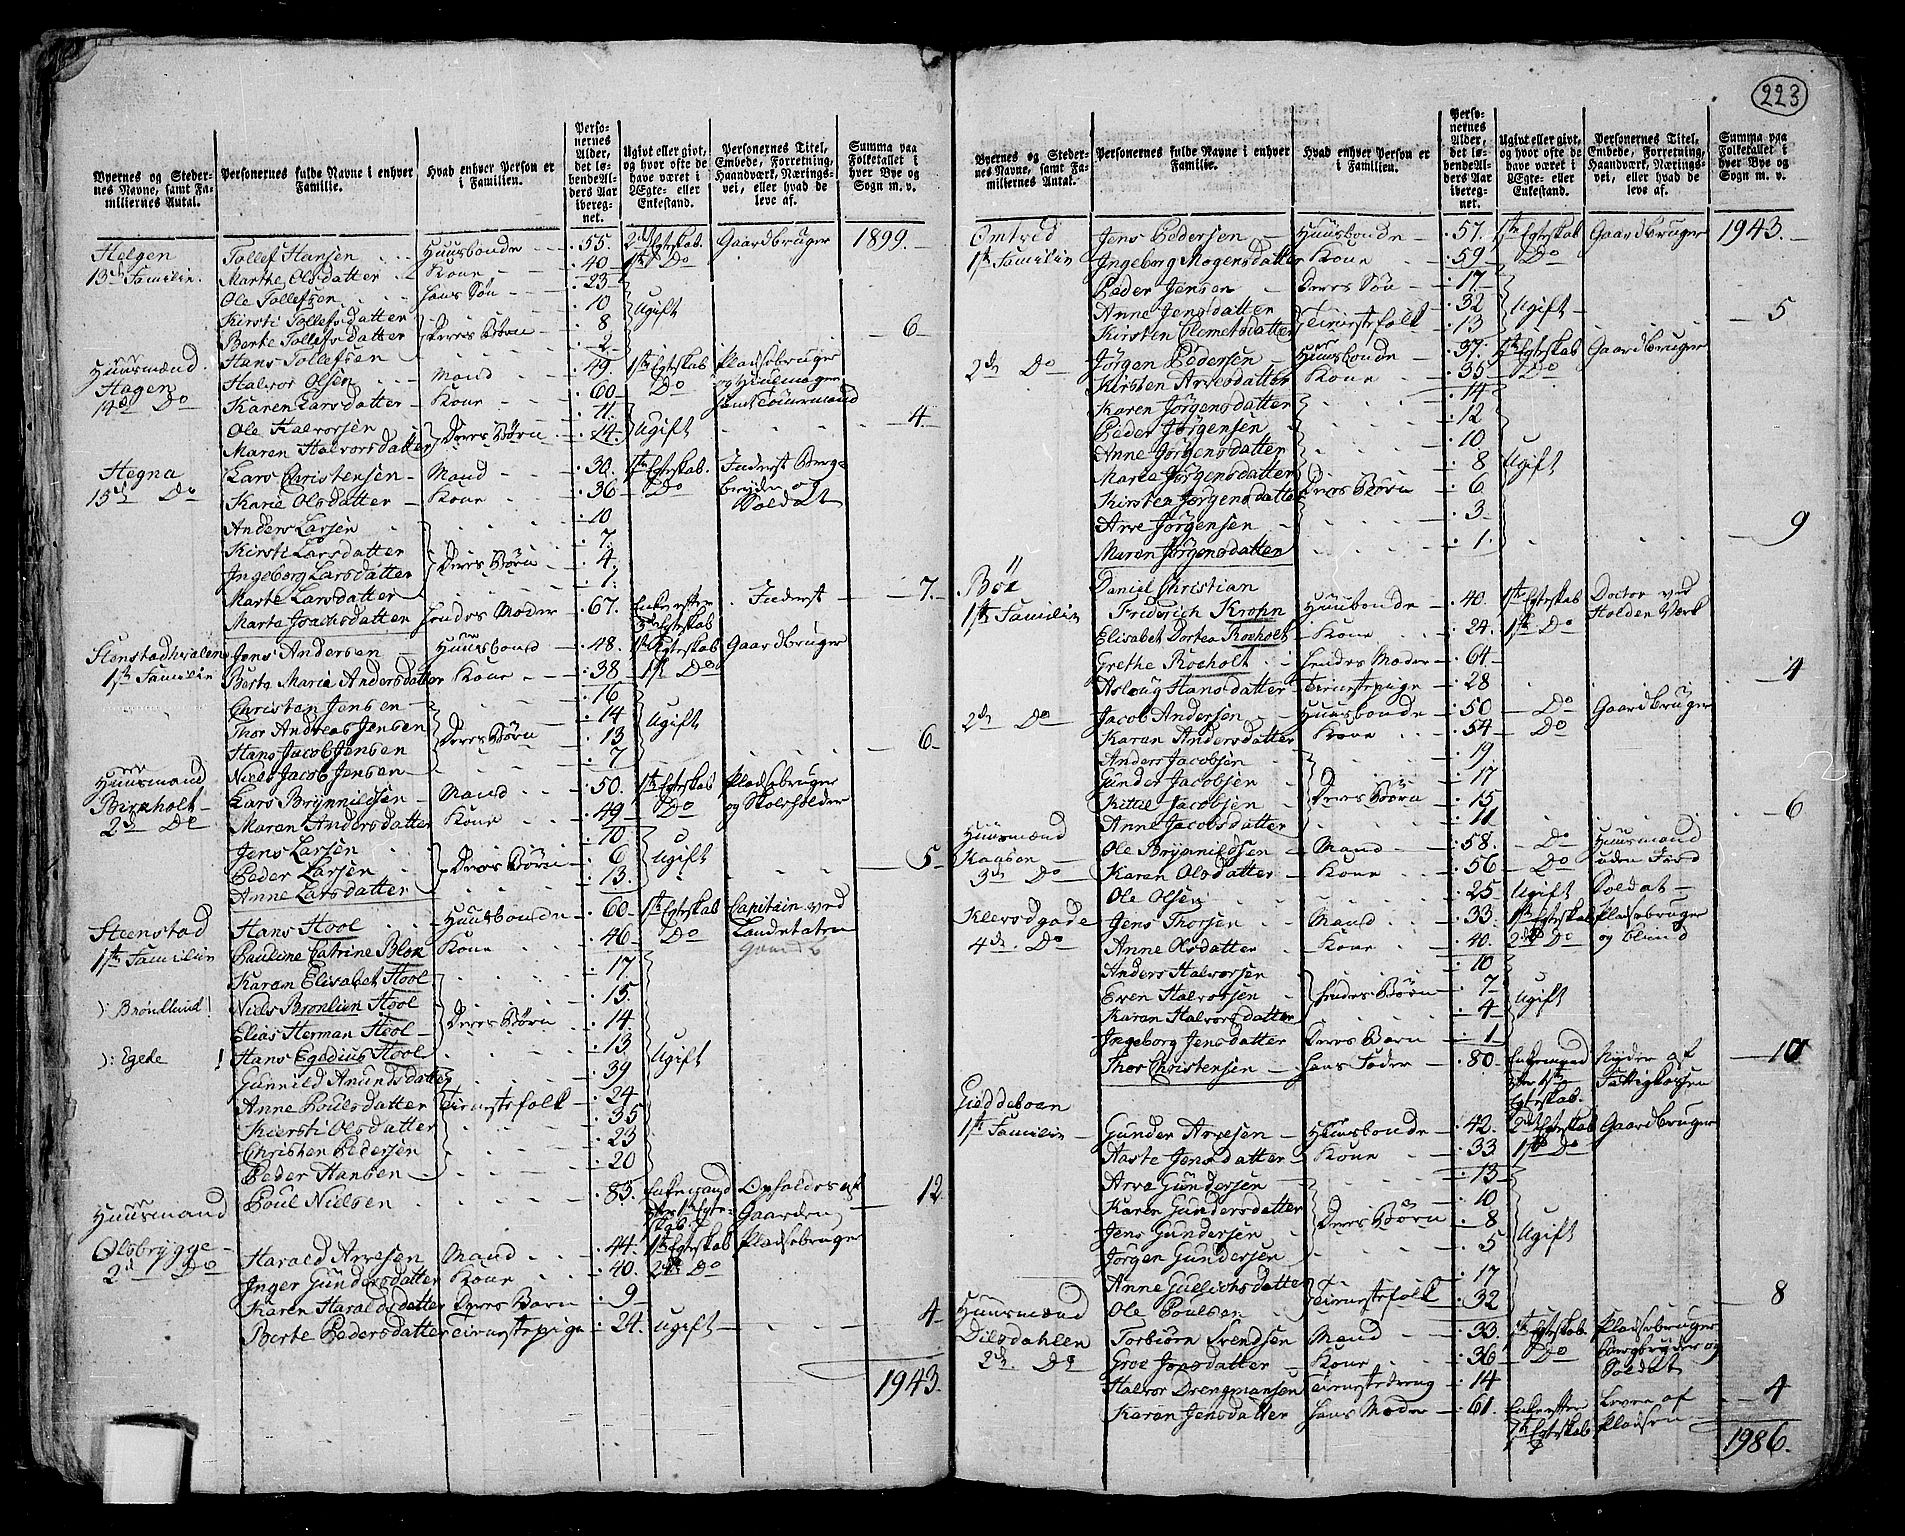 223
Byernes og Stedernes Navne, samt Familiernes Antal.
Personernes fulde Navne i enhver Familie.
Hvad enhver Person er i Familien.
Personernes Alder, det løbende Alders Aar iberegnet.
Ugivt eller givt, og hvor ofte de have været i Ægte- eller Enkestand.
Personernes Titel, Embede, Forretning, Haandværk, Næringsvei, eller hvad de leve af.
Summa paa Folketallet i hver Bye og Sogn m. v.
Helgen Tollef Hansen Huusbonde 55. 2det Egteskab. Gaardbruger 1899.
13de Familie. Marthe Olsdatter Kone 40 1ste Do
Ole Tollefsen hans Søn 23
Kirsti Tollefsdatter 10
Berte Tollefsdatter Deres Børn 8 Ugift
Hans Tollefsen 2 6
Huusmænd
Hagen Halvor Olsen Mand 49. 1ste Egteskab Pladsebruger og Huulmager samt Tømmermand
14de Do Karen Larsdatter Kone 60 Do
Ole Halvorsen 11.
Maren Halvorsdatter Deres Børn 24. Ugift 4
Hegna Lars Christensen Mand 30. 1ste Egteskab. Inderst Bergbryder og Soldat
15de Do Karie Olsdatter Kone 36 Do
Anders Larsen 10
Kirsti Larsdatter 7.
Ingeborg Larsdatter Deres Børn 4.
Marte Larsdatter 1. 7.
Marte Isachsdatter hendes Moder 67. Enke efter Egteskab Inderst
Steenstadhvalen Jens Andersen Huusbond 48. 1ste Egteskab Gaardbruger
1ste Familie Berte Maria Andersdatter Kone 38 1ste Do
Christen Jensen 16
Thor Andreas Jensen 14 Ugift
Hans Jacob Jensen Deres Børn 13
Niels Jacob Jensen 7 6
Huusmænd
Birkholt Lars Brynnildsen Mand 50. 1ste Egteskab Pladsebruger og Skoleholder
2de Do Maren Andersdatter Kone 49 Do
Jens Larsen 10
Peder Larsen Deres Børn 6 Ugift
Anne Larsdatter 13. 5
Steenstad Hans Hool Huusbonde 60 1ste Egteskab Capitain ved Landetaten
1ste Familie Pauline Catrine Blok Kone 46 Do
Karen Elisabet Hool 17
): Brøndlund! Niels Bronlien Hool 15.
Elias Herman Hool Deres Børn 14
): Egede ! Hans Egedius Hool 13 Ugift
Gunnild Amundsdatter 39
Anne Poulsdatter Tienestefolk 24
Kiersti Olsdatter 35
Christen Pedersen 23
Peder Hansen 20
Poul Nielsen 83. Enkemand efter 1ste Egteskab Opholdes af Gaarden 12
Huusmænd
Olsbrygge Harald Arvesen Mand 44. 1ste Egteskab Pladsebruger
2de Do Inger Gundersdatter Kone 40. 2det Do
Karen Haraldsdatter Deres Barn 9
Berte Pedersdatter Tienestepige 24. Ugift 4
1943.
Byernes og Stedernes Navne, samt Familiernes Antal.
Personernes fulde Navne i enhver Familie.
Hvad enhver Person er i Familien.
Personernes Alder, det løbende Alders Aar iberegnet.
Ugivt eller givt, og hvor ofte de have været i Ægte- eller Enkestand.
Personernes Titel, Embede, Forretning, Haandværk, Næringsvei, eller hvad de leve af.
Summa paa Folketallet i hver Bye og Sogn m. v.
Omtved Jens Pedersen Huusbonde 57. 1ste Egteskab Gaardbruger 1943.
1ste Familie Ingeborg Mogensdatter Kone 59 Do
Peder Jensen Deres Søn 17
Anne Jensdatter 32 Ugift
Kirsten Clemetsdatter Tienestefolk 13 5
2de Do Jørgen Pedersen Huusbonde 37. 1ste Egteskab Gaardbruger
Kirsten Arvesdatter Kone 35 Do
Karen Jørgensdatter 14
Peder Jørgensen 12
Anne Jørgensdatter 10
Marte Jørgensdatter 8 Ugift
Kirsten Jørgensdatter Deres Børn 6
Arve Jørgensen 3
Maren Jørgensdatter 1. 9
Böe Daniel Christian
1ste Familie Friderich Krohn Huusbonde 40. 1ste Egteskab Doctor ved Holden Værk
Elisabet Dortea Rocholt Kone 24. 1ste Do
Grethe Rocholt hendes Moder 64
Asloug Hansdatter Tienestepige 28 4
2de Do Jacob Andersen Huusbonde 50 Do Gaardbruger
Karen Andersdatter Kone 54 Do
Anders Jacobsen 19
Gunder Jacobsen 17
Kittil Jacobsen Deres Børn 15
Anne Jacobsdatter 11 6
Huusmænd
Kaasen Ole Brynnildsen Mand 58. Do Huusmand uden Jord
3de Do Karen Olsdatter Kone 56 Do
Ole Olsen 25 Ugift Soldat
Klevsdgade Jens Thorsen Mand 33. 1ste Egteskab Pladsebruger og blind
4de Do Anne Olsdatter Kone 40. 2det Do
Anders Halvorsen 10
Even Halvorsen hendes Børn 7 Ugift
Karen Halvorsdatter 4
Ingeborg Jensdatter Deres Barn 1
Thor Christensen hans Fader 80. Enkemand efter 1ste Egteskab Nyder af Fattigkassen 10
Gieddeboen
1ste Familie Gunder Arvesen Huusbonde 42. 2det Egteskab Gaardbruger
Aaste Jensdatter Kone 33 1ste Do
Arve Gundersen 13
Karen Gundersdatter 10
Jens Gundersen Deres Børn 8 Ugift
Jørgen Gundersen 5
Anne Gullichsdatter 17
Ole Poulsen Tienestefolk 32 8
Huusmænd
Dilsdahlen Torbiørn Svendsen Mand 33. 1ste Egteskab. Pladsebruger Bergbryder og Soldat
2de Do Groe Jonsdatter Kone 36 Do
Halvor Drengmansen Tienestedreng 14
Karen Jensdatter hans Moder 61. Enke efter 1ste Egteskab Lever af Pladsen 4
1986.